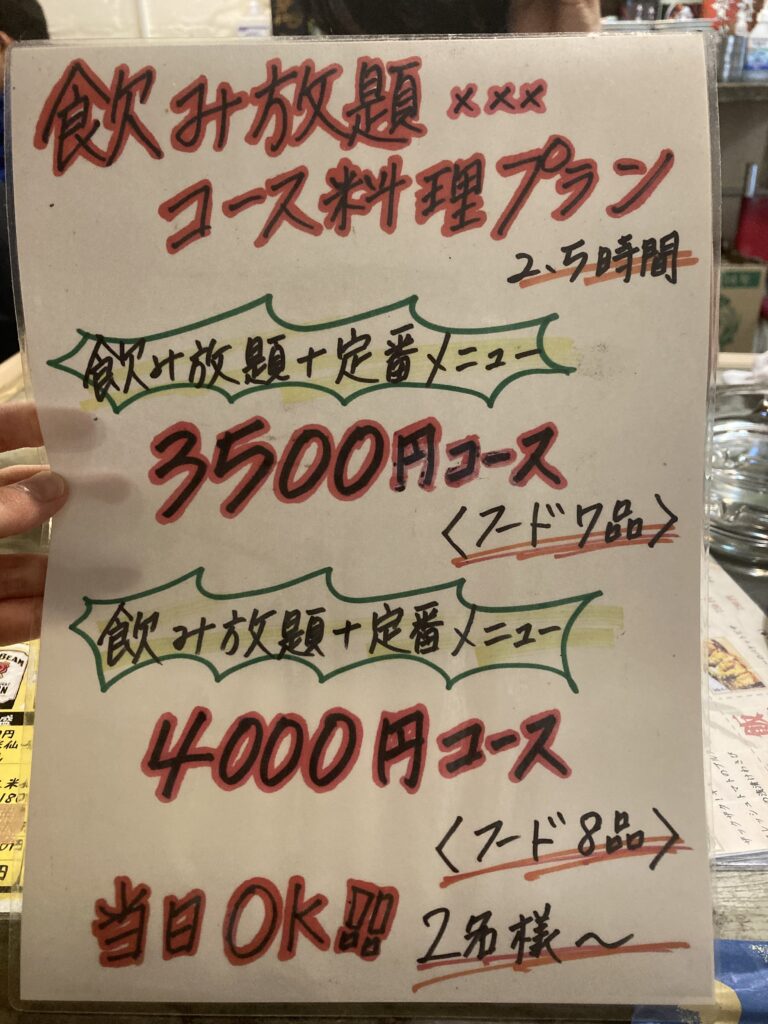 飲み放題 ×××
コース料理プラン
2、5時間
飲み放題+定番メニュー
3500円コース
〈フード7品〉
飲み放題+定番メニュー
4000円コース
〈フード8品〉
当日OK!!
2名様〜